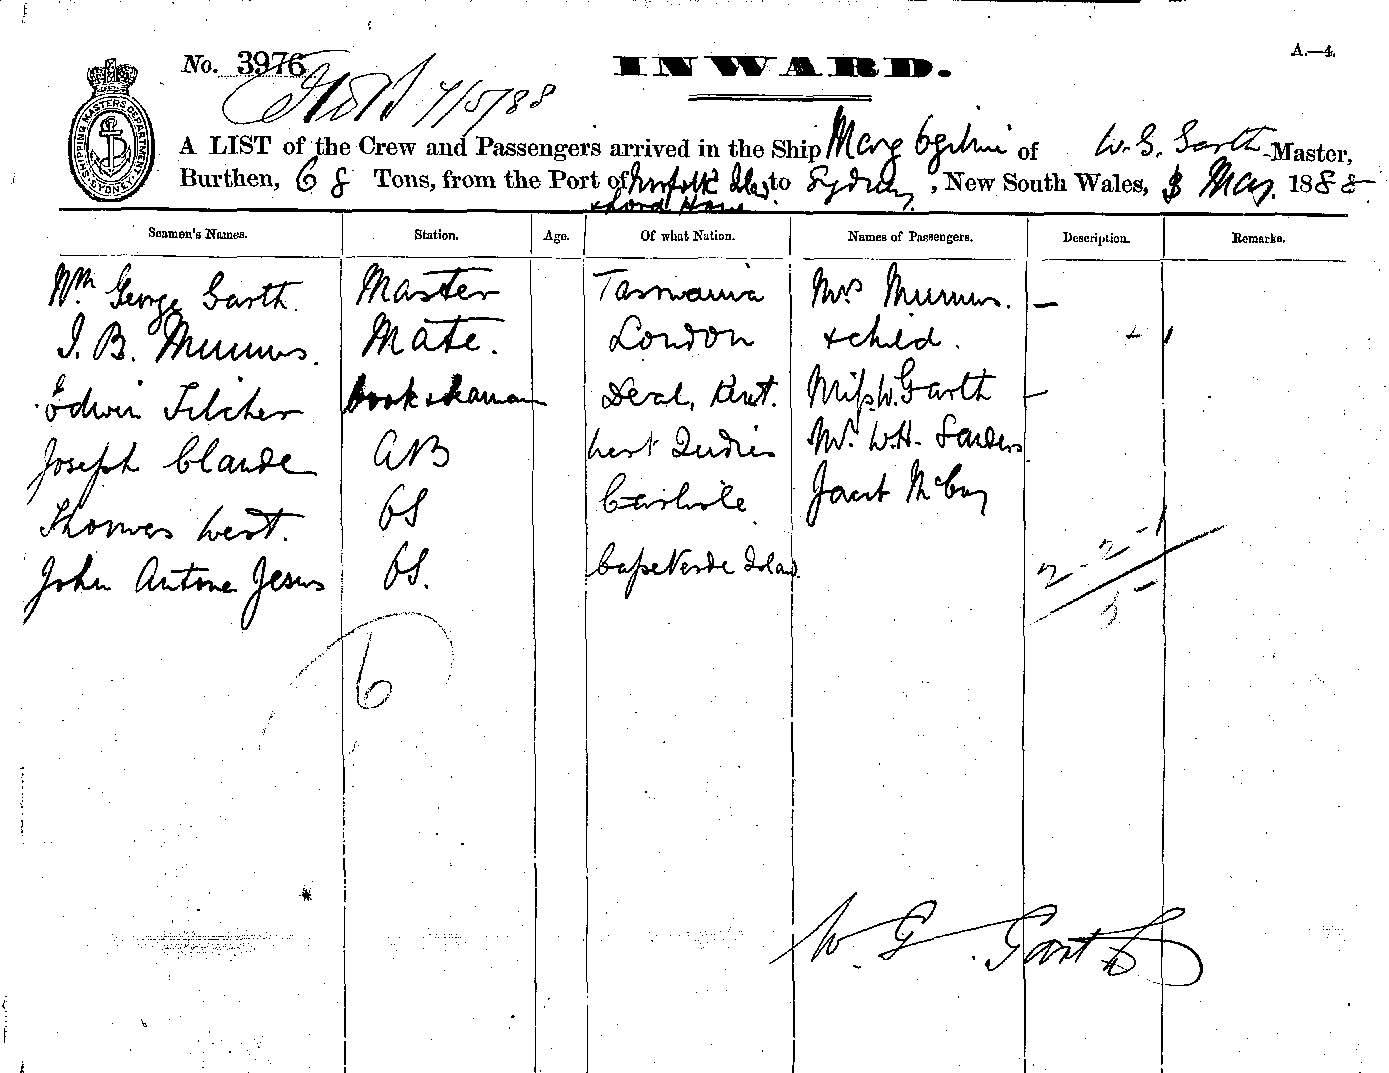 A.—4.
No. 3976
INWARD.
7/5/88
SHIPPING MASTERS DEPARTMENT SYDNEY
A LIST of the Crew and Passengers arrived in the Ship Mary Ogilvie of W. G. Garth Master,
Burthen, 68 Tons, from the Port of Norfolk Island to Sydney, New South Wales, May 1888
Seamen's Names. Station. Age. Of what Nation. Names of Passengers. Description. Remarks.
Wm George Garth. Master Tasmania Mrs
Mate. London + child. 1
Edwin Filcher Cook & Seaman Deal, Kent. Miss W. Garth
Joseph Claude AB West Indies Mr. W.H. Sanders
Thomas West. OS Carlisle
John Antone Jesus OS. Cape Verde Island
2-2-1
5
6
W. G. Garth